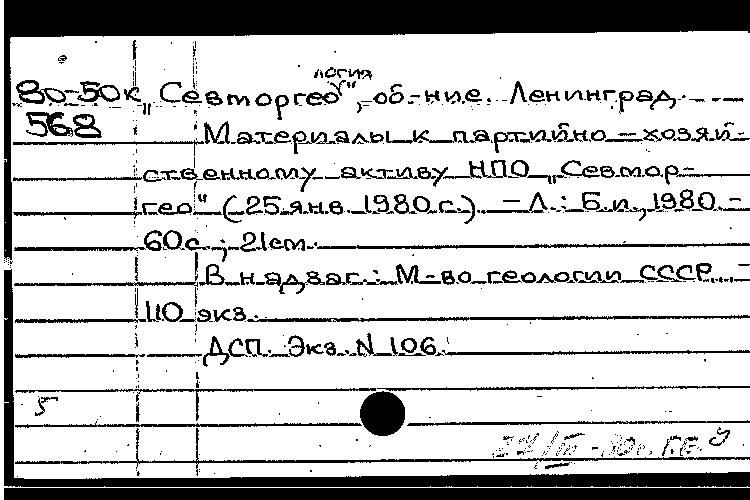 логия
80-50к „Севторгео", об-ние. Ленинград.
568 Материалы к партийно-хозяй-
ственному активу НПО „Севтор-
гео" (25 янв. 1980 г.). - Л.: Б.и., 1980. -
60 с.; 21 см.
В надзаг.: М-во геологии СССР... -
110 экз.
ДСП. Экз. N 106.
5